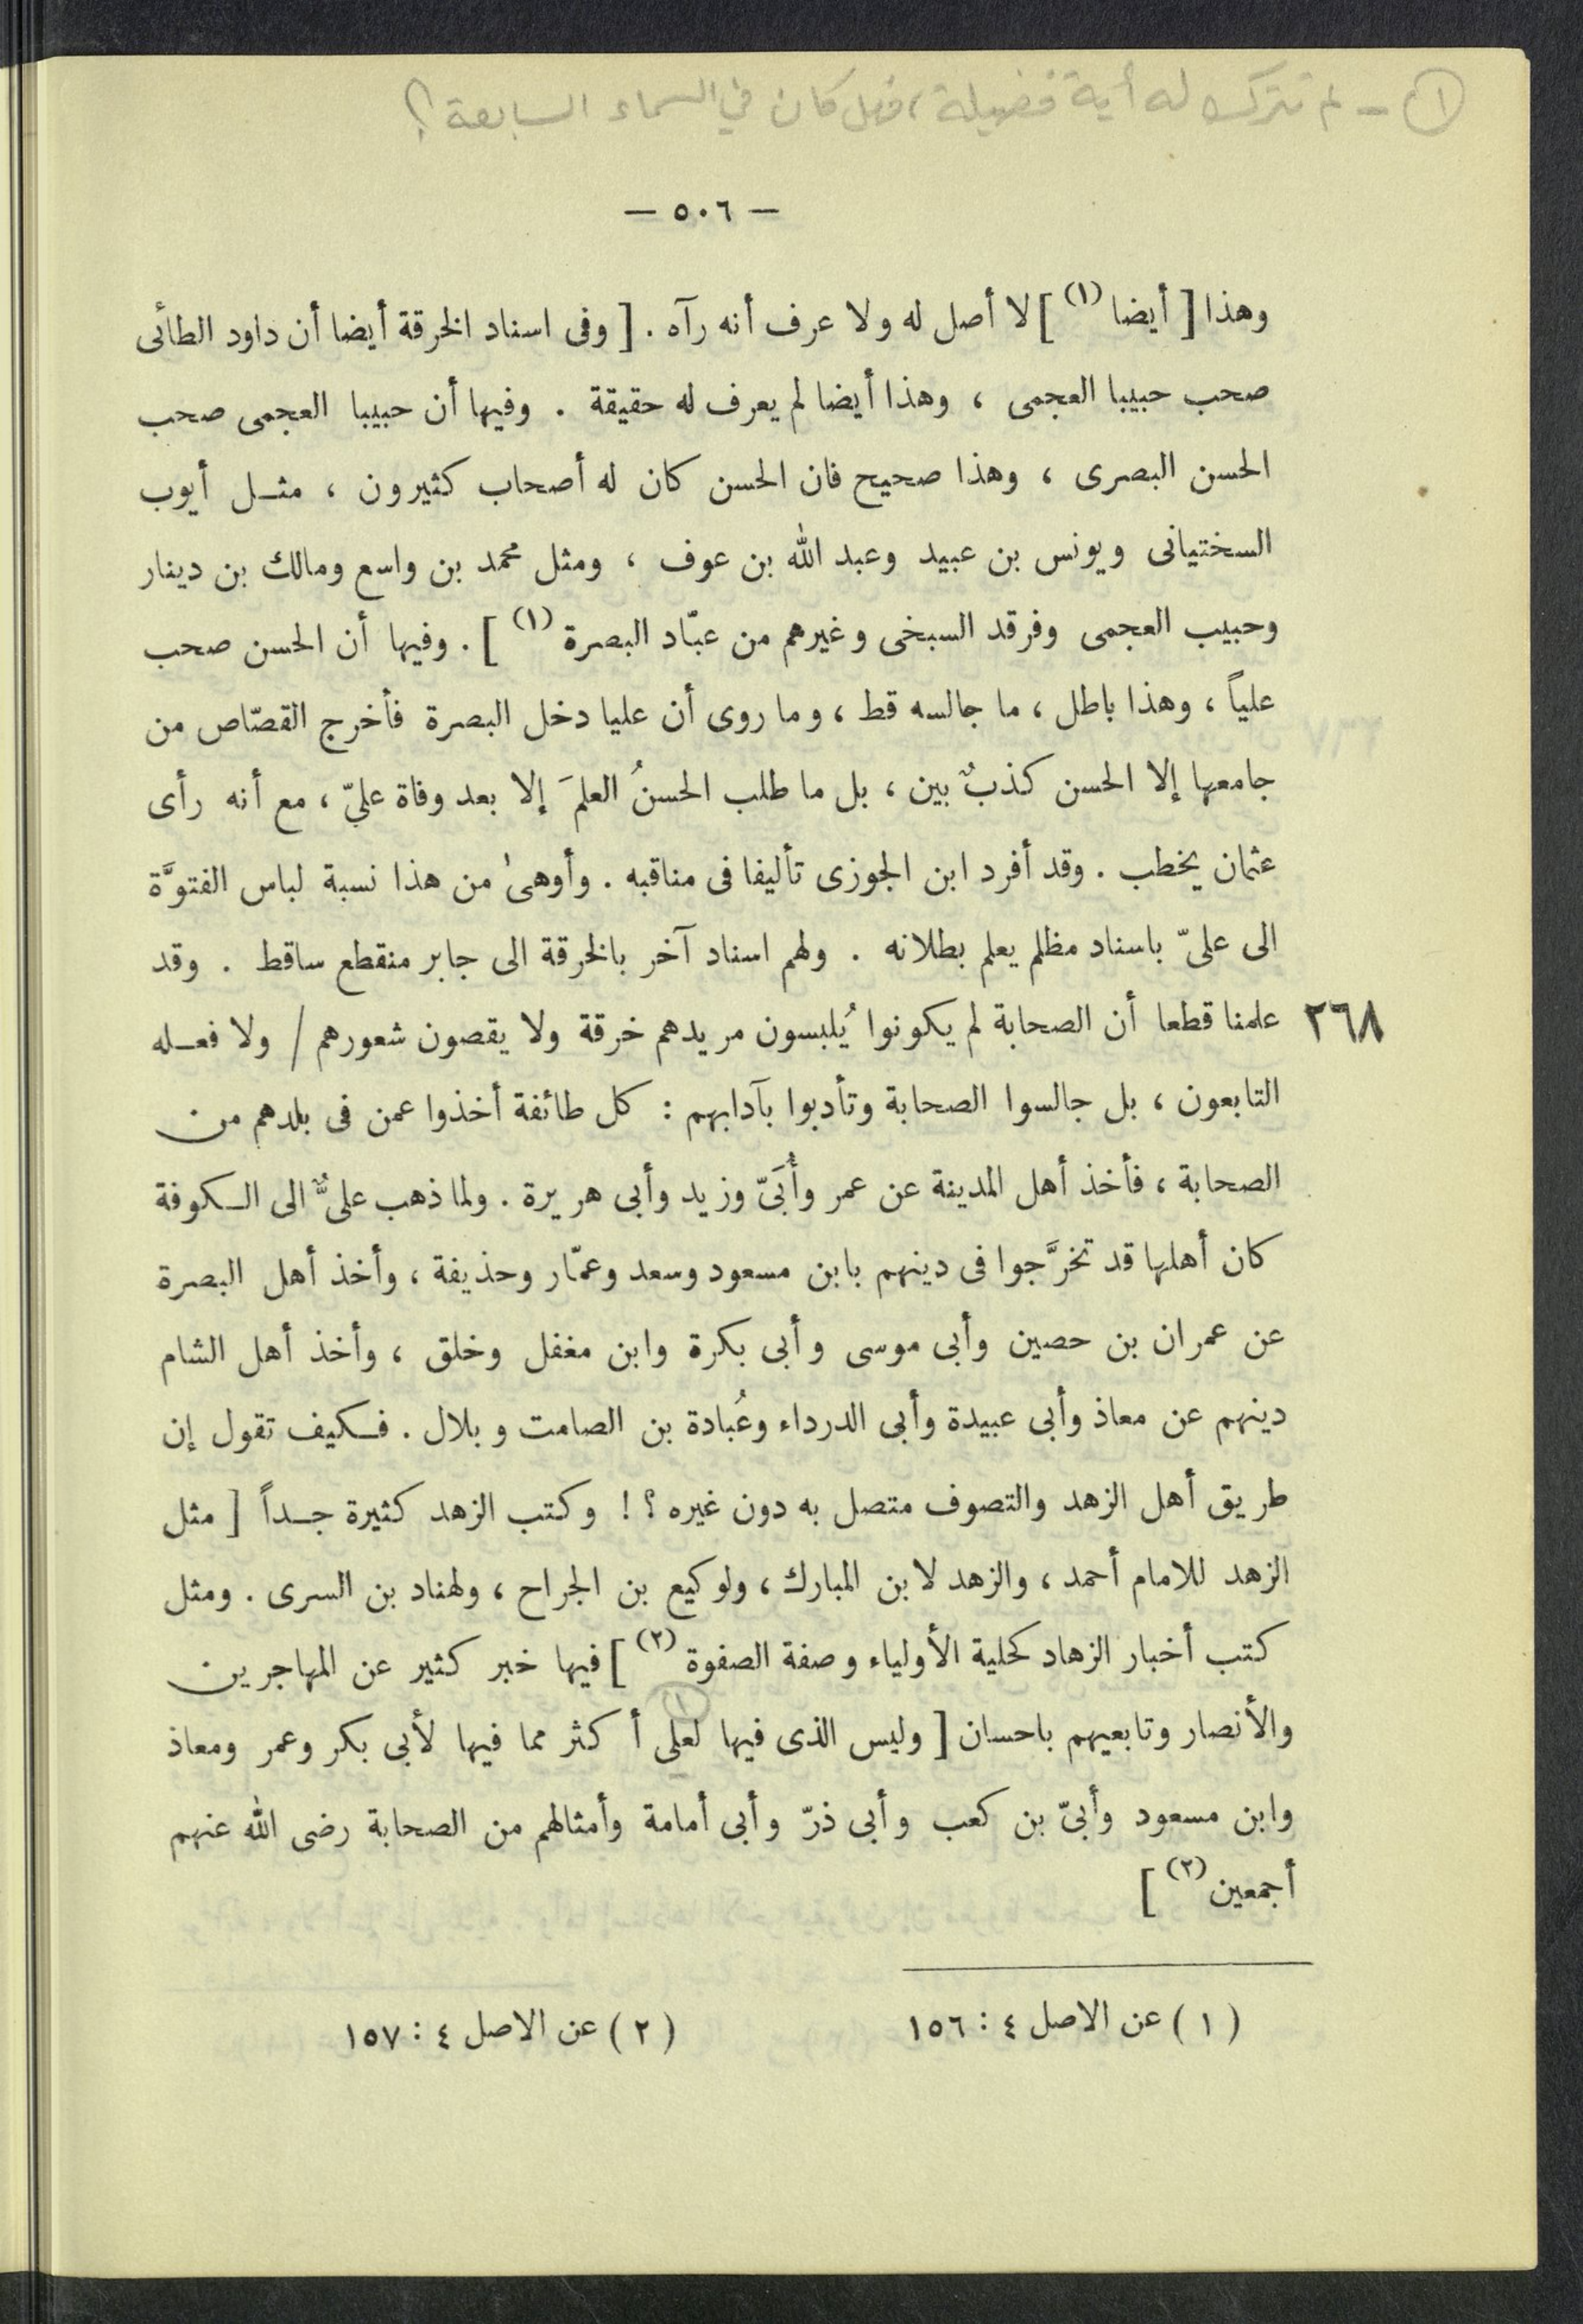 (١) - لم تترك له أية فضيلة، فهل كان في السماء السابعة؟
— ٥٠٦ —
وهذا [ أيضا (١) ] لا أصل له ولا عرف أنه رآه . [ وفى اسناد الخرقة أيضا أن داود الطائى
صحب حبيبا العجمى ، وهذا أيضا لم يعرف له حقيقة . وفيها أن حبيبا العجمى صحب
الحسن البصرى ، وهذا صحيح فان الحسن كان له أصحاب كثيرون ، مثل أيوب
السختيانى ويونس بن عبيد وعبد الله بن عوف ، ومثل محمد بن واسع ومالك بن دينار
وحبيب العجمى وفرقد السبخى وغيرهم من عبّاد البصرة (١) ] . وفيها أن الحسن صحب
علياً ، وهذا باطل ، ما جالسه قط ، وما روى أن عليا دخل البصرة فأخرج القصّاص من
جامعها إلا الحسن كذبٌ بين ، بل ما طلب الحسنُ العلمَ إلا بعد وفاة عليّ ، مع أنه رأى
عثمان يخطب . وقد أفرد ابن الجوزى تأليفا فى مناقبه . وأوهىٰ من هذا نسبة لباس الفتوَّة
الى علىّ باسناد مظلم يعلم بطلانه . ولهم اسناد آخر بالخرقة الى جابر منقطع ساقط . وقد
٢٦٨ علمنا قطعا أن الصحابة لم يكونوا يُلبسون مريدهم خرقة ولا يقصون شعورهم / ولا فعله
التابعون ، بل جالسوا الصحابة وتأدبوا بآدابهم : كل طائفة أخذوا عمن فى بلدهم من
الصحابة ، فأخذ أهل المدينة عن عمر وأُبَىّ وزيد وأبى هريرة . ولما ذهب علىٌّ الى الكوفة
كان أهلها قد تخرَّجوا فى دينهم بابن مسعود وسعد وعمّار وحذيفة ، وأخذ أهل البصرة
عن عمران بن حصين وأبى موسى وأبى بكرة وابن مغفل وخلق ، وأخذ أهل الشام
دينهم عن معاذ وأبى عبيدة وأبى الدرداء وعُبادة بن الصامت وبلال . فكيف تقول إن
طريق أهل الزهد والتصوف متصل به دون غيره ؟ ! وكتب الزهد كثيرة جداً [ مثل
الزهد للامام أحمد ، والزهد لابن المبارك ، ولوكيع بن الجراح ، ولهناد بن السرى . ومثل
كتب أخبار الزهاد كحلية الأولياء وصفة الصفوة (٢) ] فيها خبر كثير عن المهاجرين
والأنصار وتابعيهم باحسان [ وليس الذى فيها لعلى (١) أكثر مما فيها لأبى بكر وعمر ومعاذ
وابن مسعود وأبىّ بن كعب وأبى ذرّ وأبى أمامة وأمثالهم من الصحابة رضى الله عنهم
أجمعين (٢) ]
( ١ ) عن الاصل ٤ : ١٥٦ ( ٢ ) عن الاصل ٤ : ١٥٧